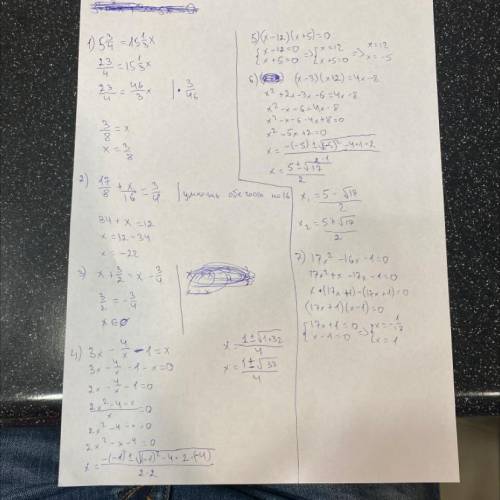 1) 5 3/4 = 15 1/3 x
23/4 = 15 1/3 x
23/4 = 46/3 x | · 3/46
3/8 = x
x = 3/8
2) 17/8 + x/16 = 3/4 | умножь обе части на 16
34 + x = 12
x = 12 - 34
x = -22
3) x + 3/2 = x - 3/4
3/2 = -3/4
x ∈ ∅
4) 3x - 4/x - 1 = x
3x - 4/x - 1 - x = 0
2x - 4/x - 1 = 0
(2x² - 4 - x)/x = 0
2x² - 4 - x = 0
2x² - x - 4 = 0
x = (-(-1) ± √((-1)² - 4 · 2 · (-4)))/(2·2)
x = (1 ± √(1+32))/4
x = (1 ± √33)/4
5) (x-12)(x+5)=0
{x-12=0 {x+5=0 => {x=12 {x+5=0 => x=12 x=-5
6) (x-3)(x+2)=4x-8
x² + 2x - 3x - 6 = 4x - 8
x² - x - 6 = 4x - 8
x² - x - 6 - 4x + 8 = 0
x² - 5x + 2 = 0
x = (-(-5) ± √((-5)² - 4·1·2))/(2·1)
x = (5 ± √17)/2
x₁ = (5 - √17)/2
x₂ = (5 + √17)/2
7) 17x² - 16x - 1 = 0
17x² + x - 17x - 1 = 0
x · (17x+1) - (17x+1) = 0
(17x+1)(x-1)=0
{17x+1=0 {x-1=0 => {x=-1/17 {x=1